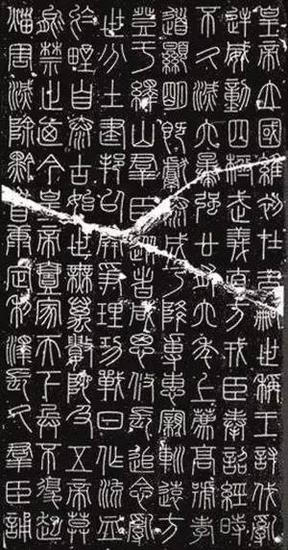 皇帝立國維初在昔嗣世稱王討伐亂
逆威動四極武義直方戎臣奉詔經時
不久滅六暴強廿有六年上薦高號孝
道顯明既獻泰成乃降專惠親巡遠方
登于繹山群臣從者咸思攸長追念亂
世分土建邦以開爭理功戰日作流血
於野自泰古始世無萬數陀及五帝莫
能禁止乃今皇帝壹家天下兵不復起
災害滅除黔首康定利澤長久群臣誦